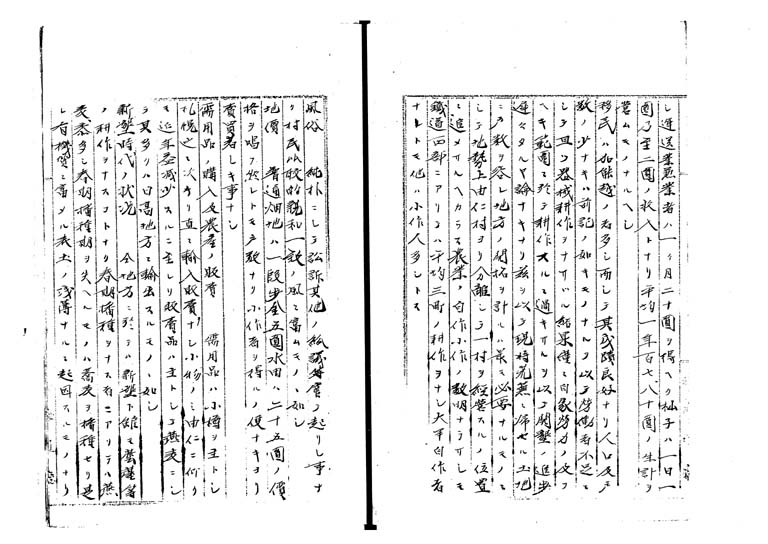 シ運送業兼業者ハ一ヶ月二十圓ヲ得ヘク杣子ハ一日一
圓乃至二圓ノ收入トナリ平均一年百七八十圓ノ生計ヲ
營ムモノナルヘシ
移民ハ加能越ノ者多シ而シテ其成蹟良好ナリ人口反
數ノ少ナキハ前記ノ如キモノナルヲ以テ勞働者不足
シ且ツ器械耕作ヲナサヾル結果僅ニ自家勞力ノ及フ
ヘキ範圍ニ於テ耕作スルニ過キサルヲ以テ開墾ノ進歩
遲々タルヤ論ナキナリ茲ヲ以テ現時荒蕪ニ帰セル土地
二戸數ヲ容レ地方ノ開拓ヲ計ルハ最モ必要ナルモノ
シテ地勢上由仁村ヨリ分離シテ一村ヲ經營スルノ位置
ニ進メサルヘカラス農業ノ自作小作ノ數明ナラサレモ
鐵道西部ニアリテハ平均三町ノ耕作ヲナシ大半自作者
ナレトモ他ハ小作人多シトス
風俗 純朴ニシテ訟訴其他ノ ノ起リシ事ナ
ク村民ハ較的親和一致ノ風ニ富ムモノヽ如シ
地價 普通畑地ハ一段歩金五圓水田ハ二十五圓ノ價
格ヲ唱フ然レトモ戸數ナク小作者ヲ得ルノ便ナキヨリ
賣買著シキ事ナシ
需用品ノ購入及農産ノ販賣 需用品ハ小樽ヲ主トシ
札幌之ニ次キ直ニ輸入販賣ナシ小物ノミ由仁ニ仰ク
モ近年益減少スルニ至レリ販賣品ハ主トシテ燕麦ニシ
テ其多クハ日高地方ニ輸出スルモノヽ如シ
新墾時代ノ狀況 今地方ニ於テハ新墾ト雖モ
ノ耕作ヲナスコトナク春期播種ヲナス者ニアリテハ燕
麦黍多シ春期播種期ヲ失ヘルモノハ蕎麦ヲ播種セリ是
レ有機質ニ富メル表土ノ浅薄ナルニ起因スルモノナリ